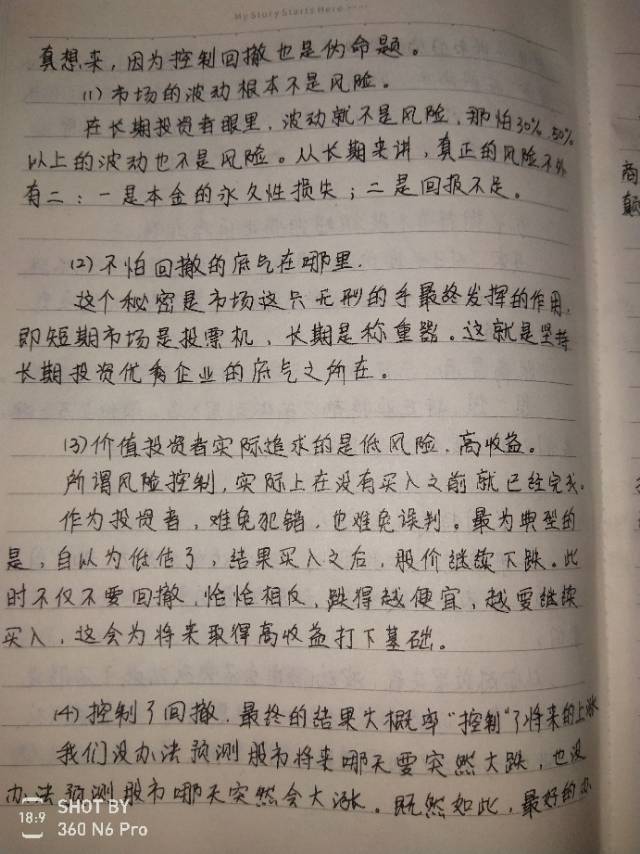 My Story Starts Here
真想来，因为控制回撤也是伪命题。
(1) 市场的波动根本不是风险。
在长期投资者眼里，波动就不是风险，那怕30%、50%
以上的波动也不是风险。从长期来讲，真正的风险不外
有二：一是本金的永久性损失；二是回报不足。
(2) 不怕回撤的底气在哪里.
这个秘密是市场这只无形的手最终发挥的作用，
即短期市场是投票机，长期是称重器。这就是坚持
长期投资优秀企业的底气之所在。
(3) 价值投资者实际追求的是低风险、高收益。
所谓风险控制，实际上在没有买入之前就已经完成.
作为投资者，难免犯错，也难免误判。最为典型的
是，自以为低估了，结果买入之后，股价继续下跌。此
时不仅不要回撤，恰恰相反，跌得越便宜，越要继续
买入，这会为将来取得高收益打下基础。
(4) 控制了回撤，最终的结果大概率“控制”了将来的上涨
我们没办法预测股市将来哪天要突然大跌，也没
办法预测股市哪天突然会大涨。既然如此，最好的办
商
颠
18:9
SHOT BY
360 N6 Pro